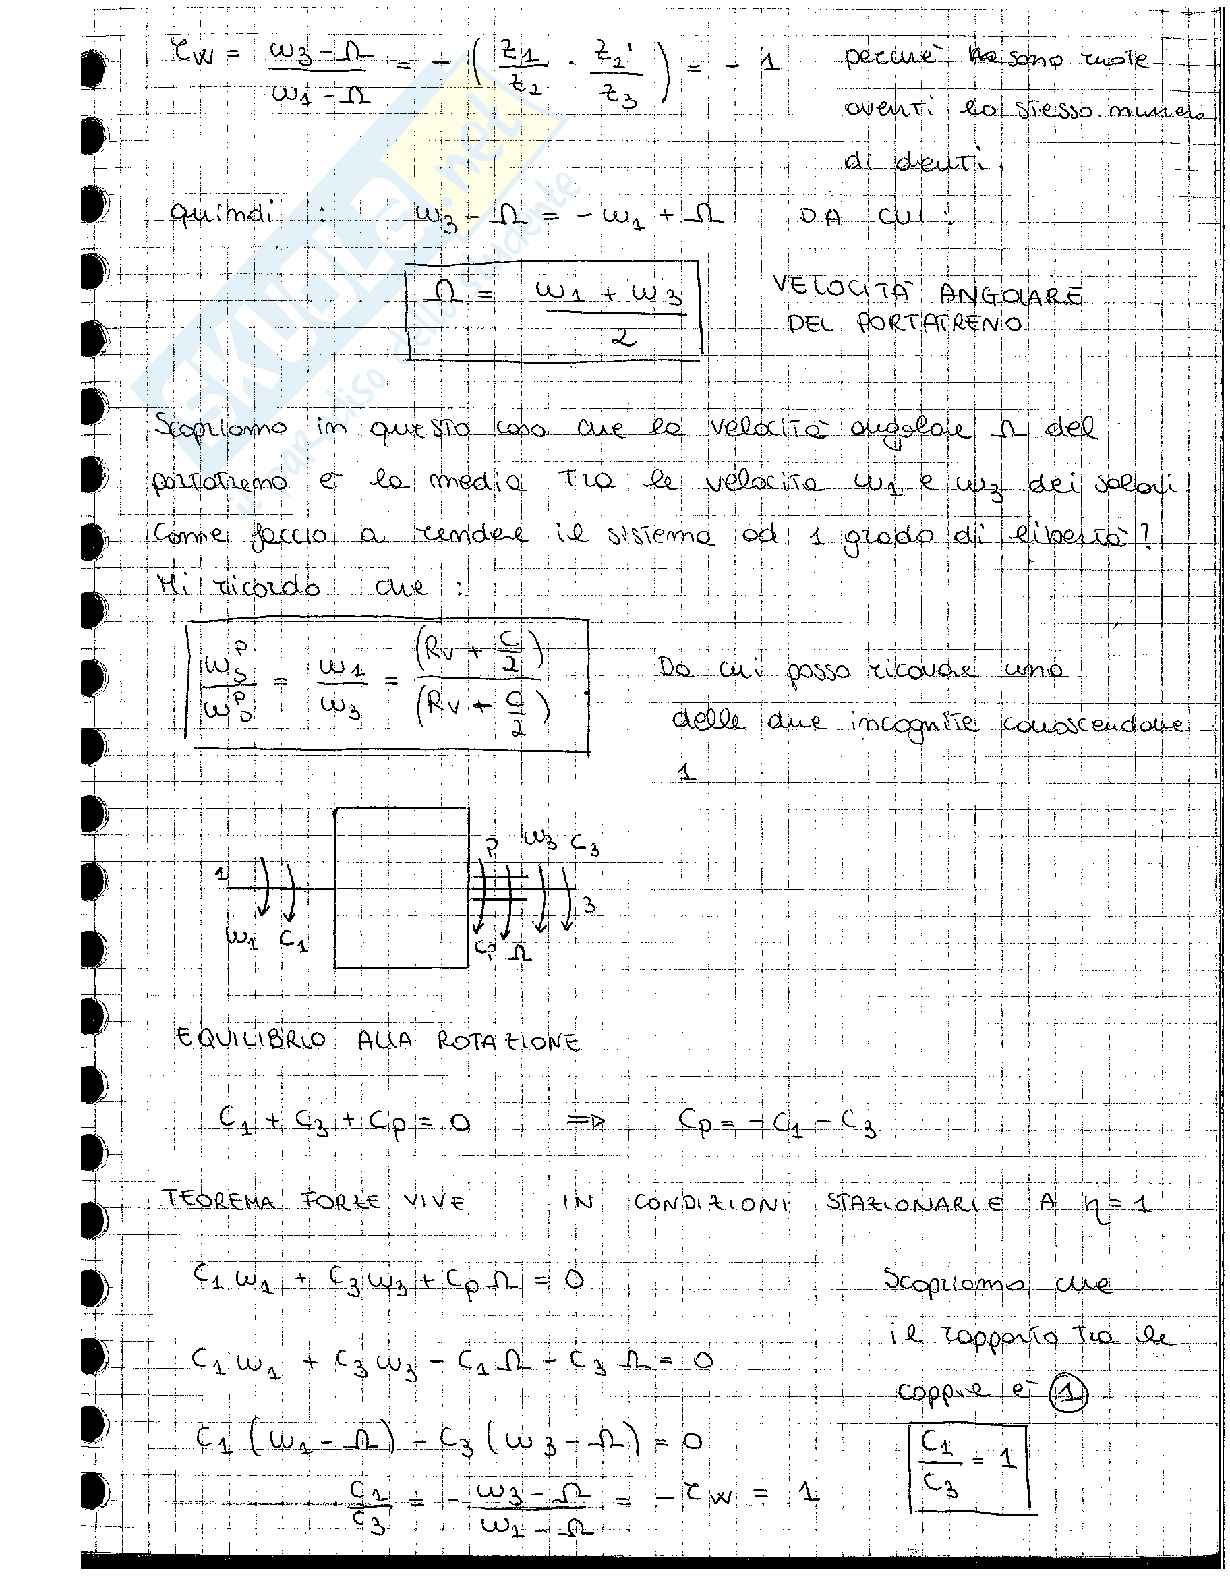 τw = (ω3 - Ω)/(ω1 - Ω) = - (z1/z2 · z2'/z3) = - 1 perchè sono ruote
aventi lo stesso numero
di denti.
quindi : ω3 - Ω = - ω1 + Ω DA CUI :
Ω = (ω1 + ω3)/2 VELOCITÀ ANGOLARE
DEL PORTATRENO
Scopriamo in questo caso che la velocità angolare Ω del
portatreno è la media tra le velocità ω1 e ω3 dei solari.
Come faccio a rendere il sistema ad 1 grado di libertà?
Mi ricordo che :
= ω1/ω3 = (Rv + c/2)/(Rv + c/2) Da cui posso ricavare una
delle due incognite conoscendone
1
P ω3 C3
1
3
ω1 C1 Cp Ω
EQUILIBRIO ALLA ROTAZIONE
C1 + C3 + Cp = 0 ⇒ Cp = - C1 - C3
TEOREMA FORZE VIVE IN CONDIZIONI STAZIONARIE A η = 1
C1 ω1 + C3 ω3 + Cp Ω = 0 Scopriamo che
il rapporto tra le
C1 ω1 + C3 ω3 - C1 Ω - C3 Ω = 0
coppie è 1
C1 (ω1 - Ω) - C3 (ω3 - Ω) = 0
C1/C3 = 1
C1/C3 = - (ω3 - Ω)/(ω1 - Ω) = - τw = 1